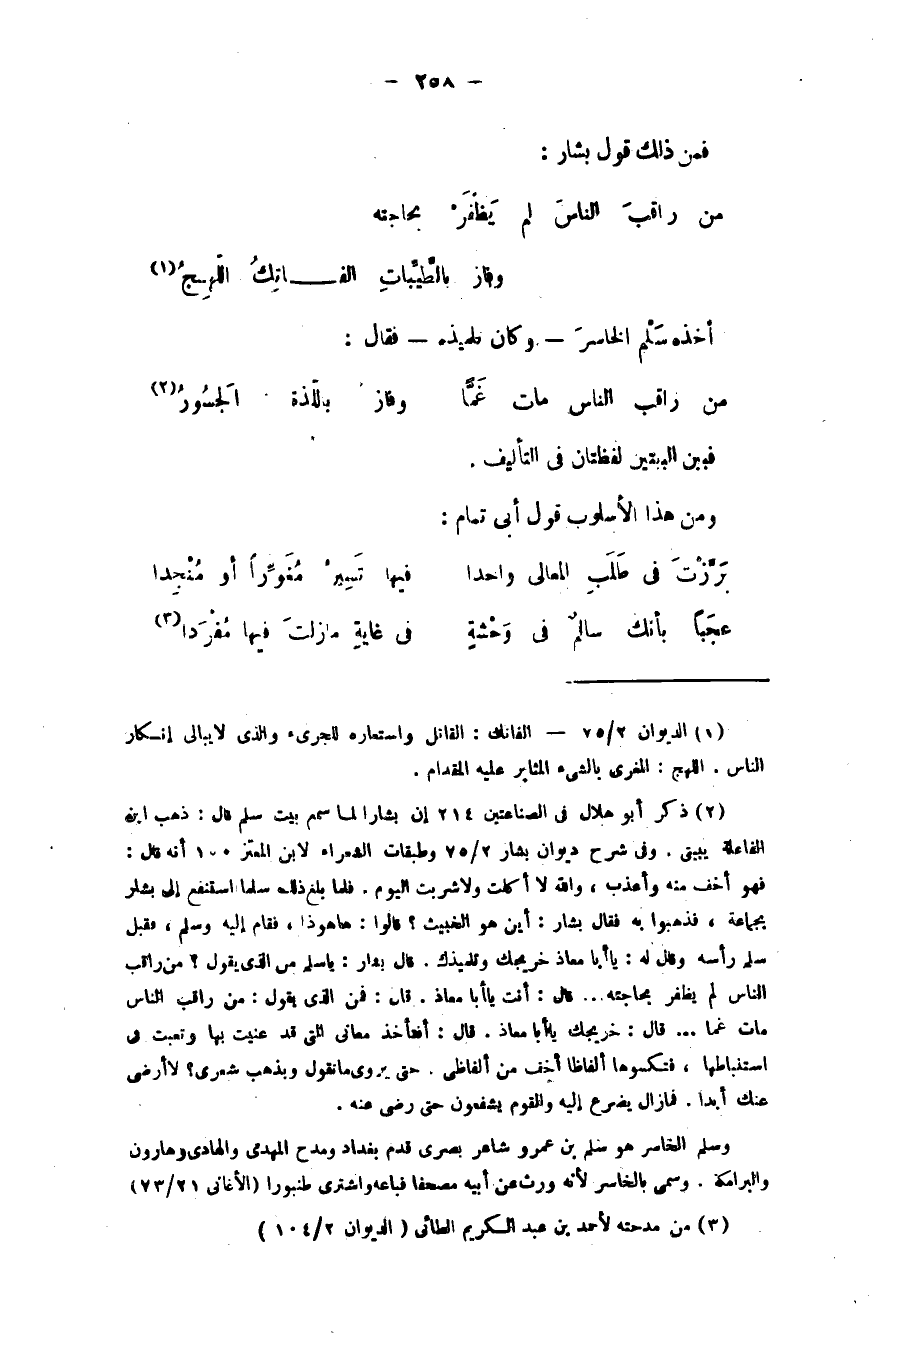 — ٢٥٨ —
فمن ذلك قول بشار :
من راقبَ الناسَ لم يَظْفَرْ بحاجته
وفاز بالطَّيِّباتِ الفـــاتِكُ اللَّهِـجُ(١)
أخذه سَلْم الخاسرَ — وكان تلميذه — فقال :
من راقب الناس مات غَمًّا وفاز باللّذة الَجسُورُ(٢)
فبين البيتين لفظتان فى التأليف .
ومن هذا الأسلوب قول أبى تمام :
بَرَّزْتَ فى طَلَبِ المعالى واحدا فيها تَسِيرُ مُغَوِّراً أو مُنْجِدا
عجَبًا بأنك سالمٌ فى وَحْشةٍ فى غايةٍ مازلتَ فيها مُفْرَدا(٣)
(١) الديوان ٧٥/٢ — الفاتك : القاتل واستعاره للجرىء والذى لايبالى إنـكار
الناس . اللهج : المغرى بالشىء المثابر عليه المقدام .
(٢) ذكر أبو هلال فى الصناعتين ٢١٤ إن بشارا لما سمم بيت سلم قال : ذهب ابن
الفاعلة ببيتى . وفى شرح ديوان بشار ٧٥/٢ وطبقات الشعراء لابن المعتز ١٠٠ أنه قال :
فهو أخف منه وأعذب ، والله لا أكلت ولاشربت اليوم . فلما بلغ ذلك سلما استشفع إلى بشار
بجماعة ، فذهبوا به فقال بشار : أين هو الخبيث ؟ قالوا : هاهوذا ، فقام إليه وسلم ، فقبل
سلم رأسه وقال له : ياأبا معاذ خريجك وتلميذك . قال بشار : ياسلم من الذى يقول ؟ من راقب
الناس لم يظفر بحاجته... قال : أنت ياأبا معاذ . قال : فمن الذى يقول : من راقب الناس
مات غما ... قال : خريجك ياأبا معاذ . قال : أفتأخذ معانى التى قد عنيت بها وتعبت فى
استنباطها ، فتكسوها ألفاظا أخف من ألفاظى . حتى يروى ماتقول ويذهب شعرى؟ لاأرضى
عنك أبدا . فمازال يضرع إليه والقوم يشفعون حتى رضى عنه .
وسلم الخاسر هو سلم بن عمرو شاعر بصرى قدم بغداد ومدح المهدى والهادى وهارون
والبرامكة . وسمى بالخاسر لأنه ورث عن أبيه مصحفا فباعه واشترى طنبورا (الأغانى ٧٣/٢١)
(٣) من مدحته لأحمد بن عبد الـكريم الطائى ( الديوان ١٠٤/٢ )